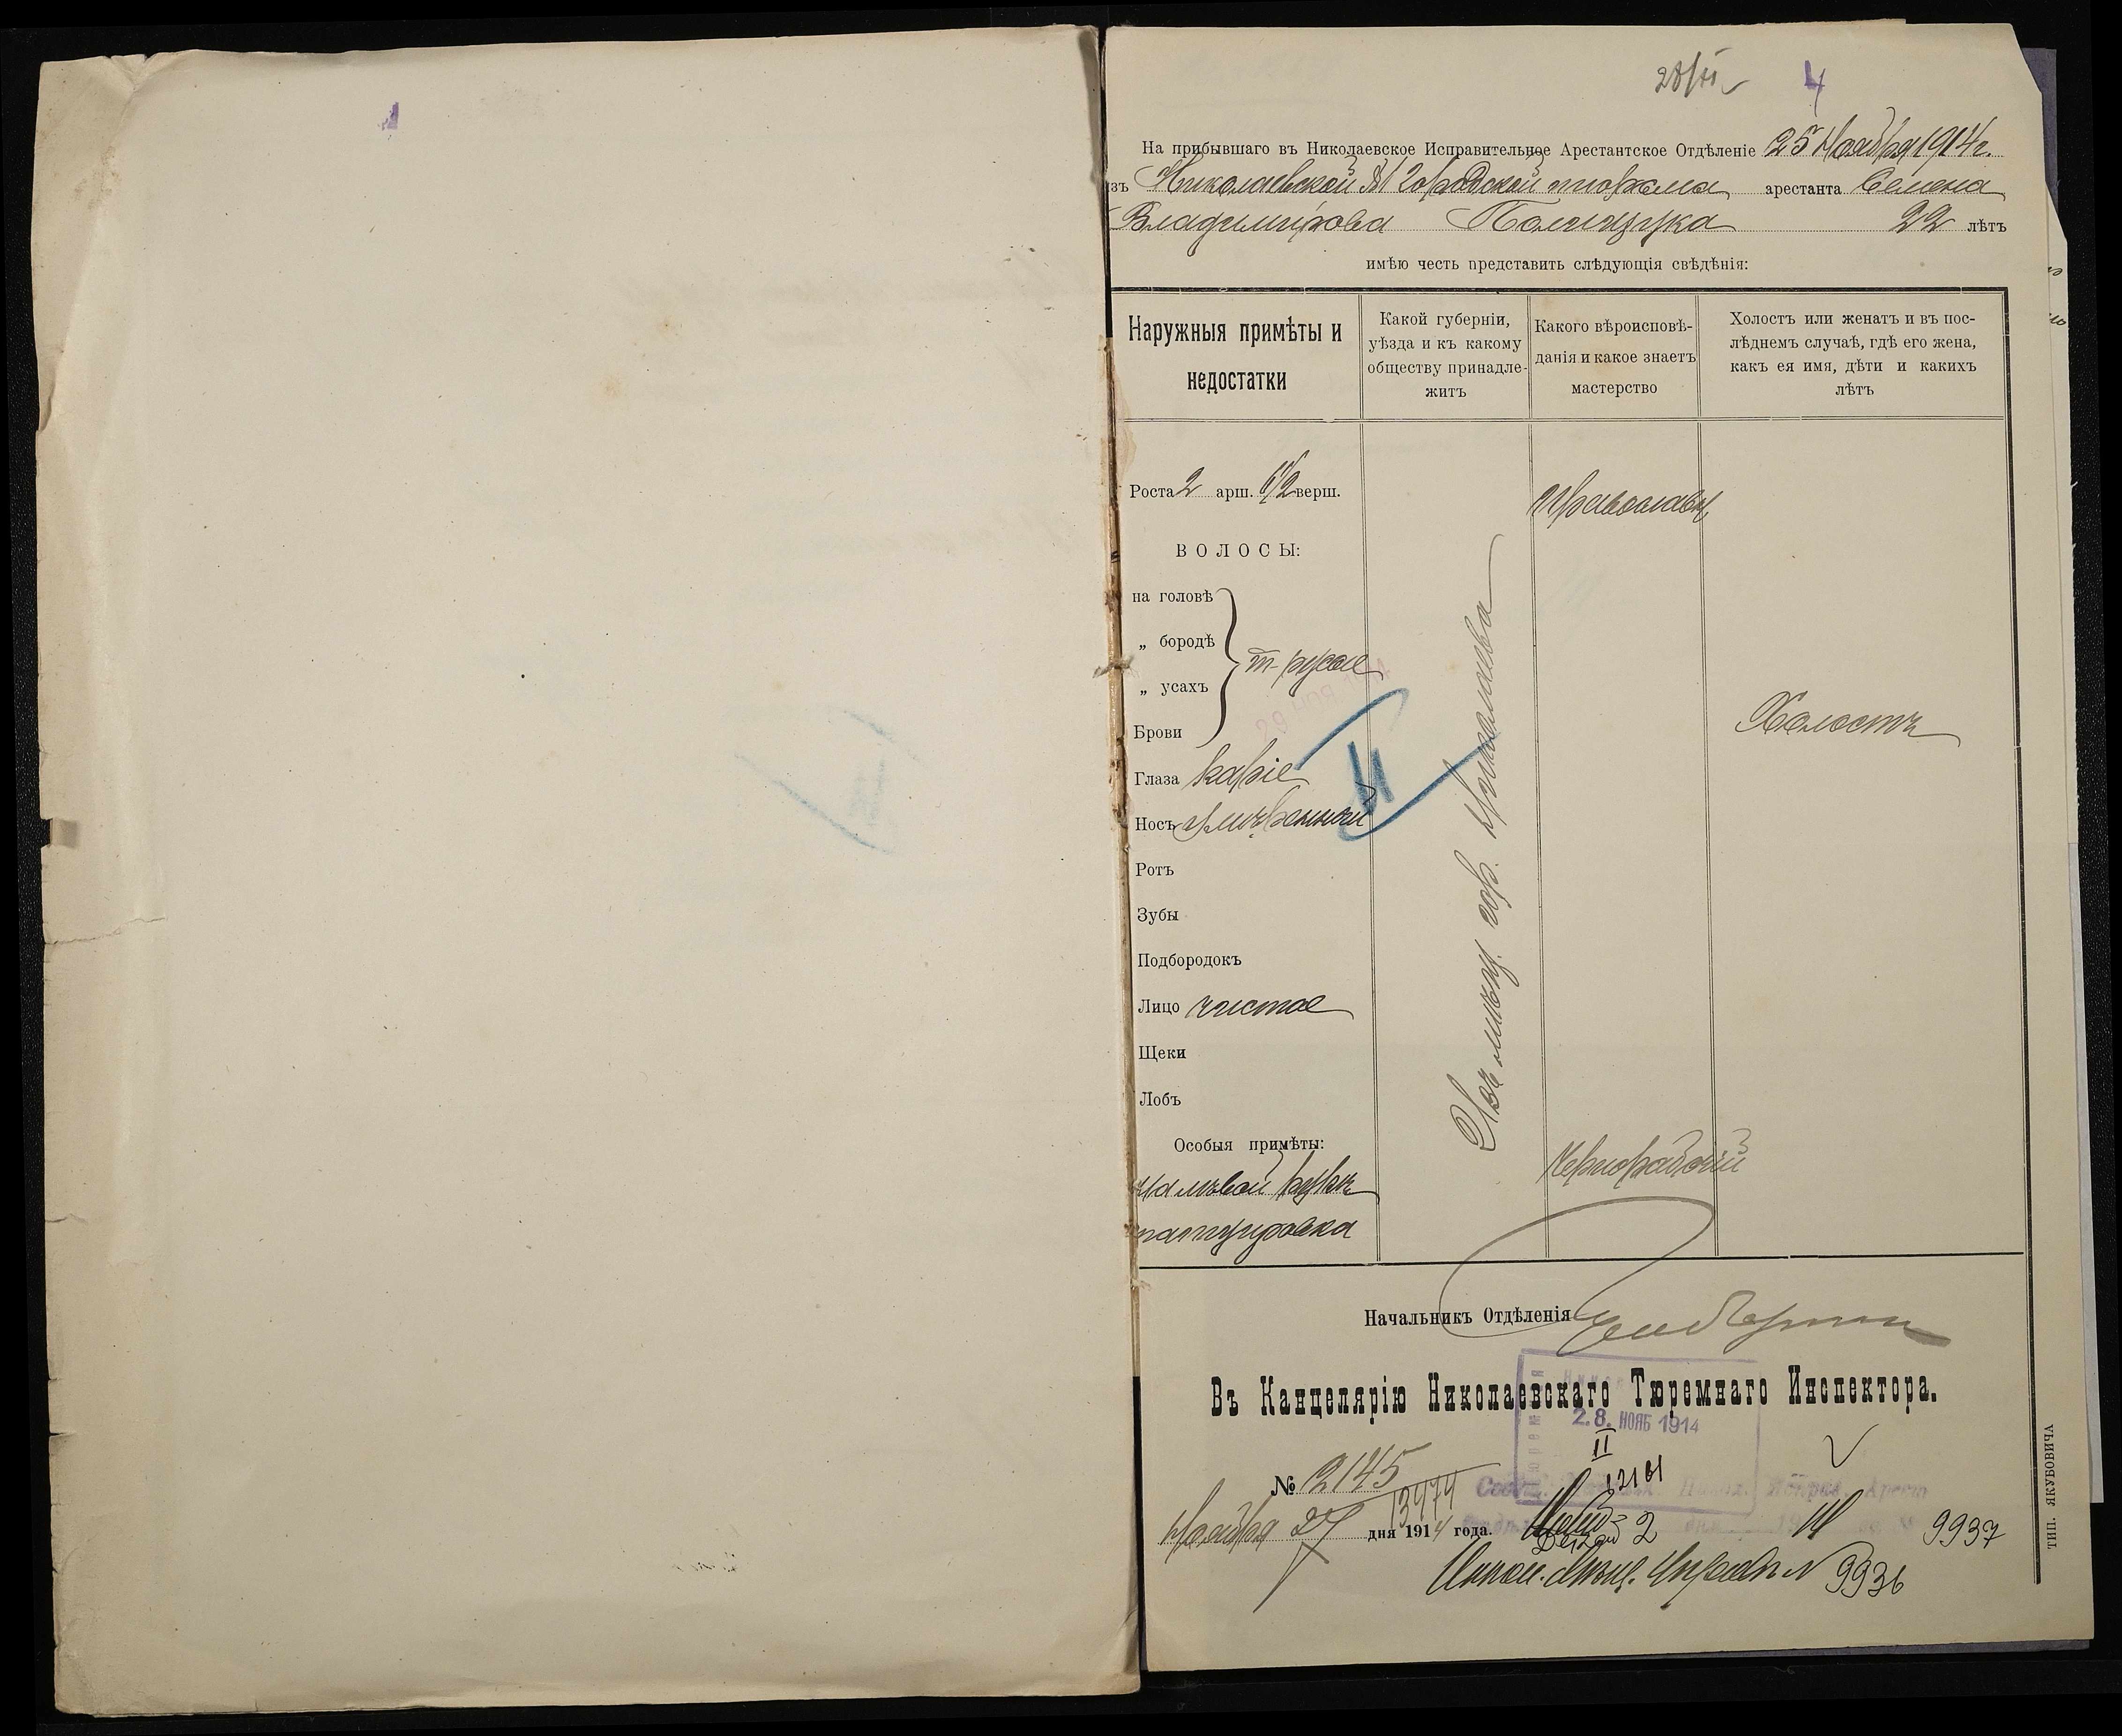 4
На прибывшаго въ Николаевское Исправительное Арестантское Отдѣленіе 25 Ноября 1914 г.
изъ Николаевской №1 городской тюрьмы арестанта Семена
Владимирова 22 лѣтъ
имѣю честь представить слѣдующія свѣдѣнія:
Наружныя примѣты и
недостатки
Какой губерніи,
уѣзда и къ какому
обществу принадле-
житъ
Какого вѣроисповѣ-
данія и какое знаетъ
мастерство
Холостъ или женатъ и въ пос-
лѣднемъ случаѣ, гдѣ его жена,
какъ ея имя, дѣти и какихъ
лѣтъ
Роста 2 арш. 6 1/2 верш.
ВОЛОСЫ:
на головѣ
„ бородѣ
„ усахъ
Брови
т-русые
Глаза карiе
Носъ умѣренный
Ротъ
Зубы
Подбородокъ
Лицо чистое
Щеки
Лобъ
Особыя примѣты:
на лѣвой рукѣ
татуировка
Изъ мѣщ. гор. Николаева
Православн
Чернорабочій
Холостъ
Начальникъ Отдѣленія
Въ Канцелярію Николаевскаго Тюремнаго Инспектора.
28. НОЯБ 1914
II
№ 2145
13474
12161
Ноября 27 дня 1914 года.
2
9937
Никол. Мѣщ. Управл № 9936
ТИП. ЯКУБОВИЧА